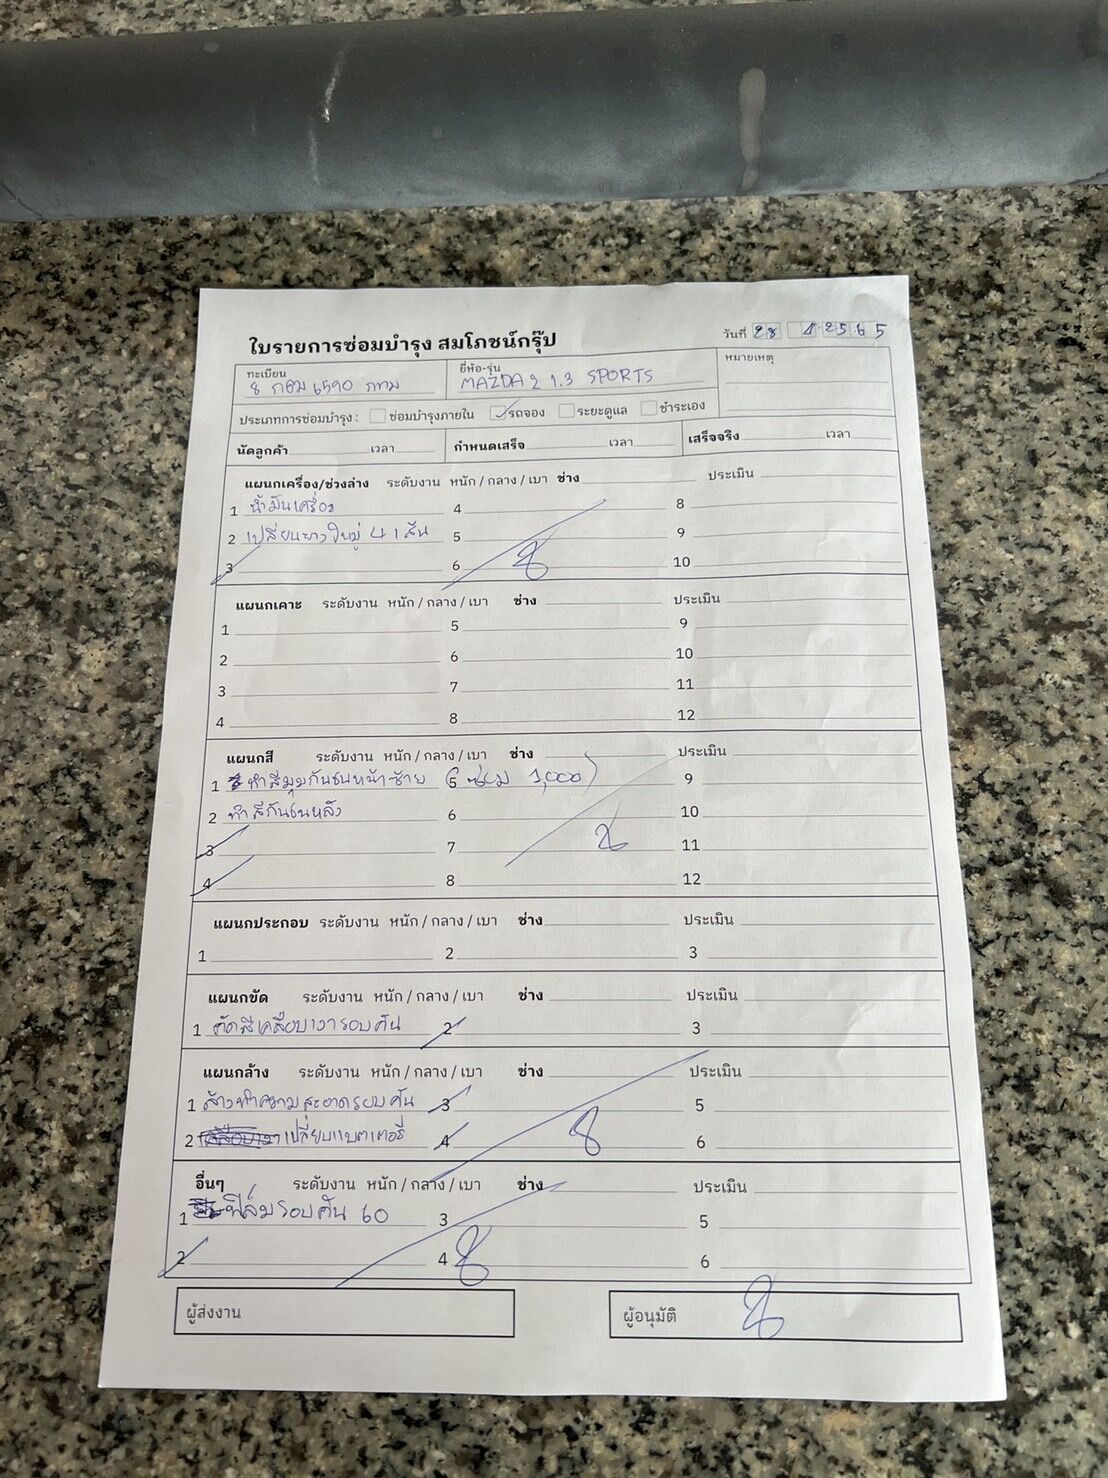 ใบรายการซ่อมบำรุง สมโภชน์กรุ๊ป
วันที่ 28 4 2565
ทะเบียน ยี่ห้อ-รุ่น หมายเหตุ
8 กฒม 6590 กทม MAZDA 2 1.3 SPORTS
ประเภทการซ่อมบำรุง : ซ่อมบำรุงภายใน รถจอง ระยะดูแล ชำระเอง
นัดลูกค้า เวลา กำหนดเสร็จ เวลา เสร็จจริง เวลา
แผนกเครื่อง/ช่วงล่าง ระดับงาน หนัก / กลาง / เบา ช่าง ประเมิน
1 น้ำมันเครื่อง 4 8
2 เปลี่ยนยางใหม่ 4 เส้น 5 9
3 6 10
แผนกเคาะ ระดับงาน หนัก / กลาง / เบา ช่าง ประเมิน
1 5 9
2 6 10
3 7 11
4 8 12
แผนกสี ระดับงาน หนัก / กลาง / เบา ช่าง ประเมิน
1 ทำสีมุมกันชนหน้าซ้าย 5 (ซ่อม 1,000) 9
2 ทำสีกันชนหลัง 6 10
3 7 11
4 8 12
แผนกประกอบ ระดับงาน หนัก / กลาง / เบา ช่าง ประเมิน
1 2 3
แผนกขัด ระดับงาน หนัก / กลาง / เบา ช่าง ประเมิน
1 ขัดสีเคลือบเงารอบคัน 2 3
แผนกล้าง ระดับงาน หนัก / กลาง / เบา ช่าง ประเมิน
1 ล้างทำความสะอาดรอบคัน 3 5
2 เปลี่ยนแบตเตอรี่ 4 6
อื่นๆ ระดับงาน หนัก / กลาง / เบา ช่าง ประเมิน
1 ฟิล์มรอบคัน 60 3 5
2 4 6
ผู้ส่งงาน ผู้อนุมัติ